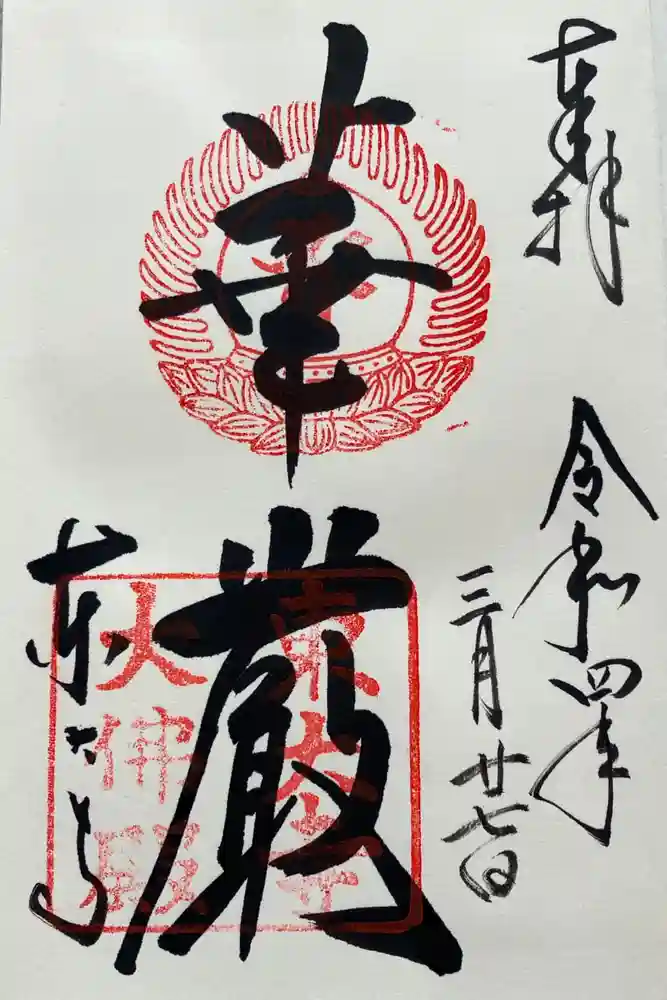 奉拝
令和四年
三月廿七日
華厳
東大寺
東大寺
大佛殿